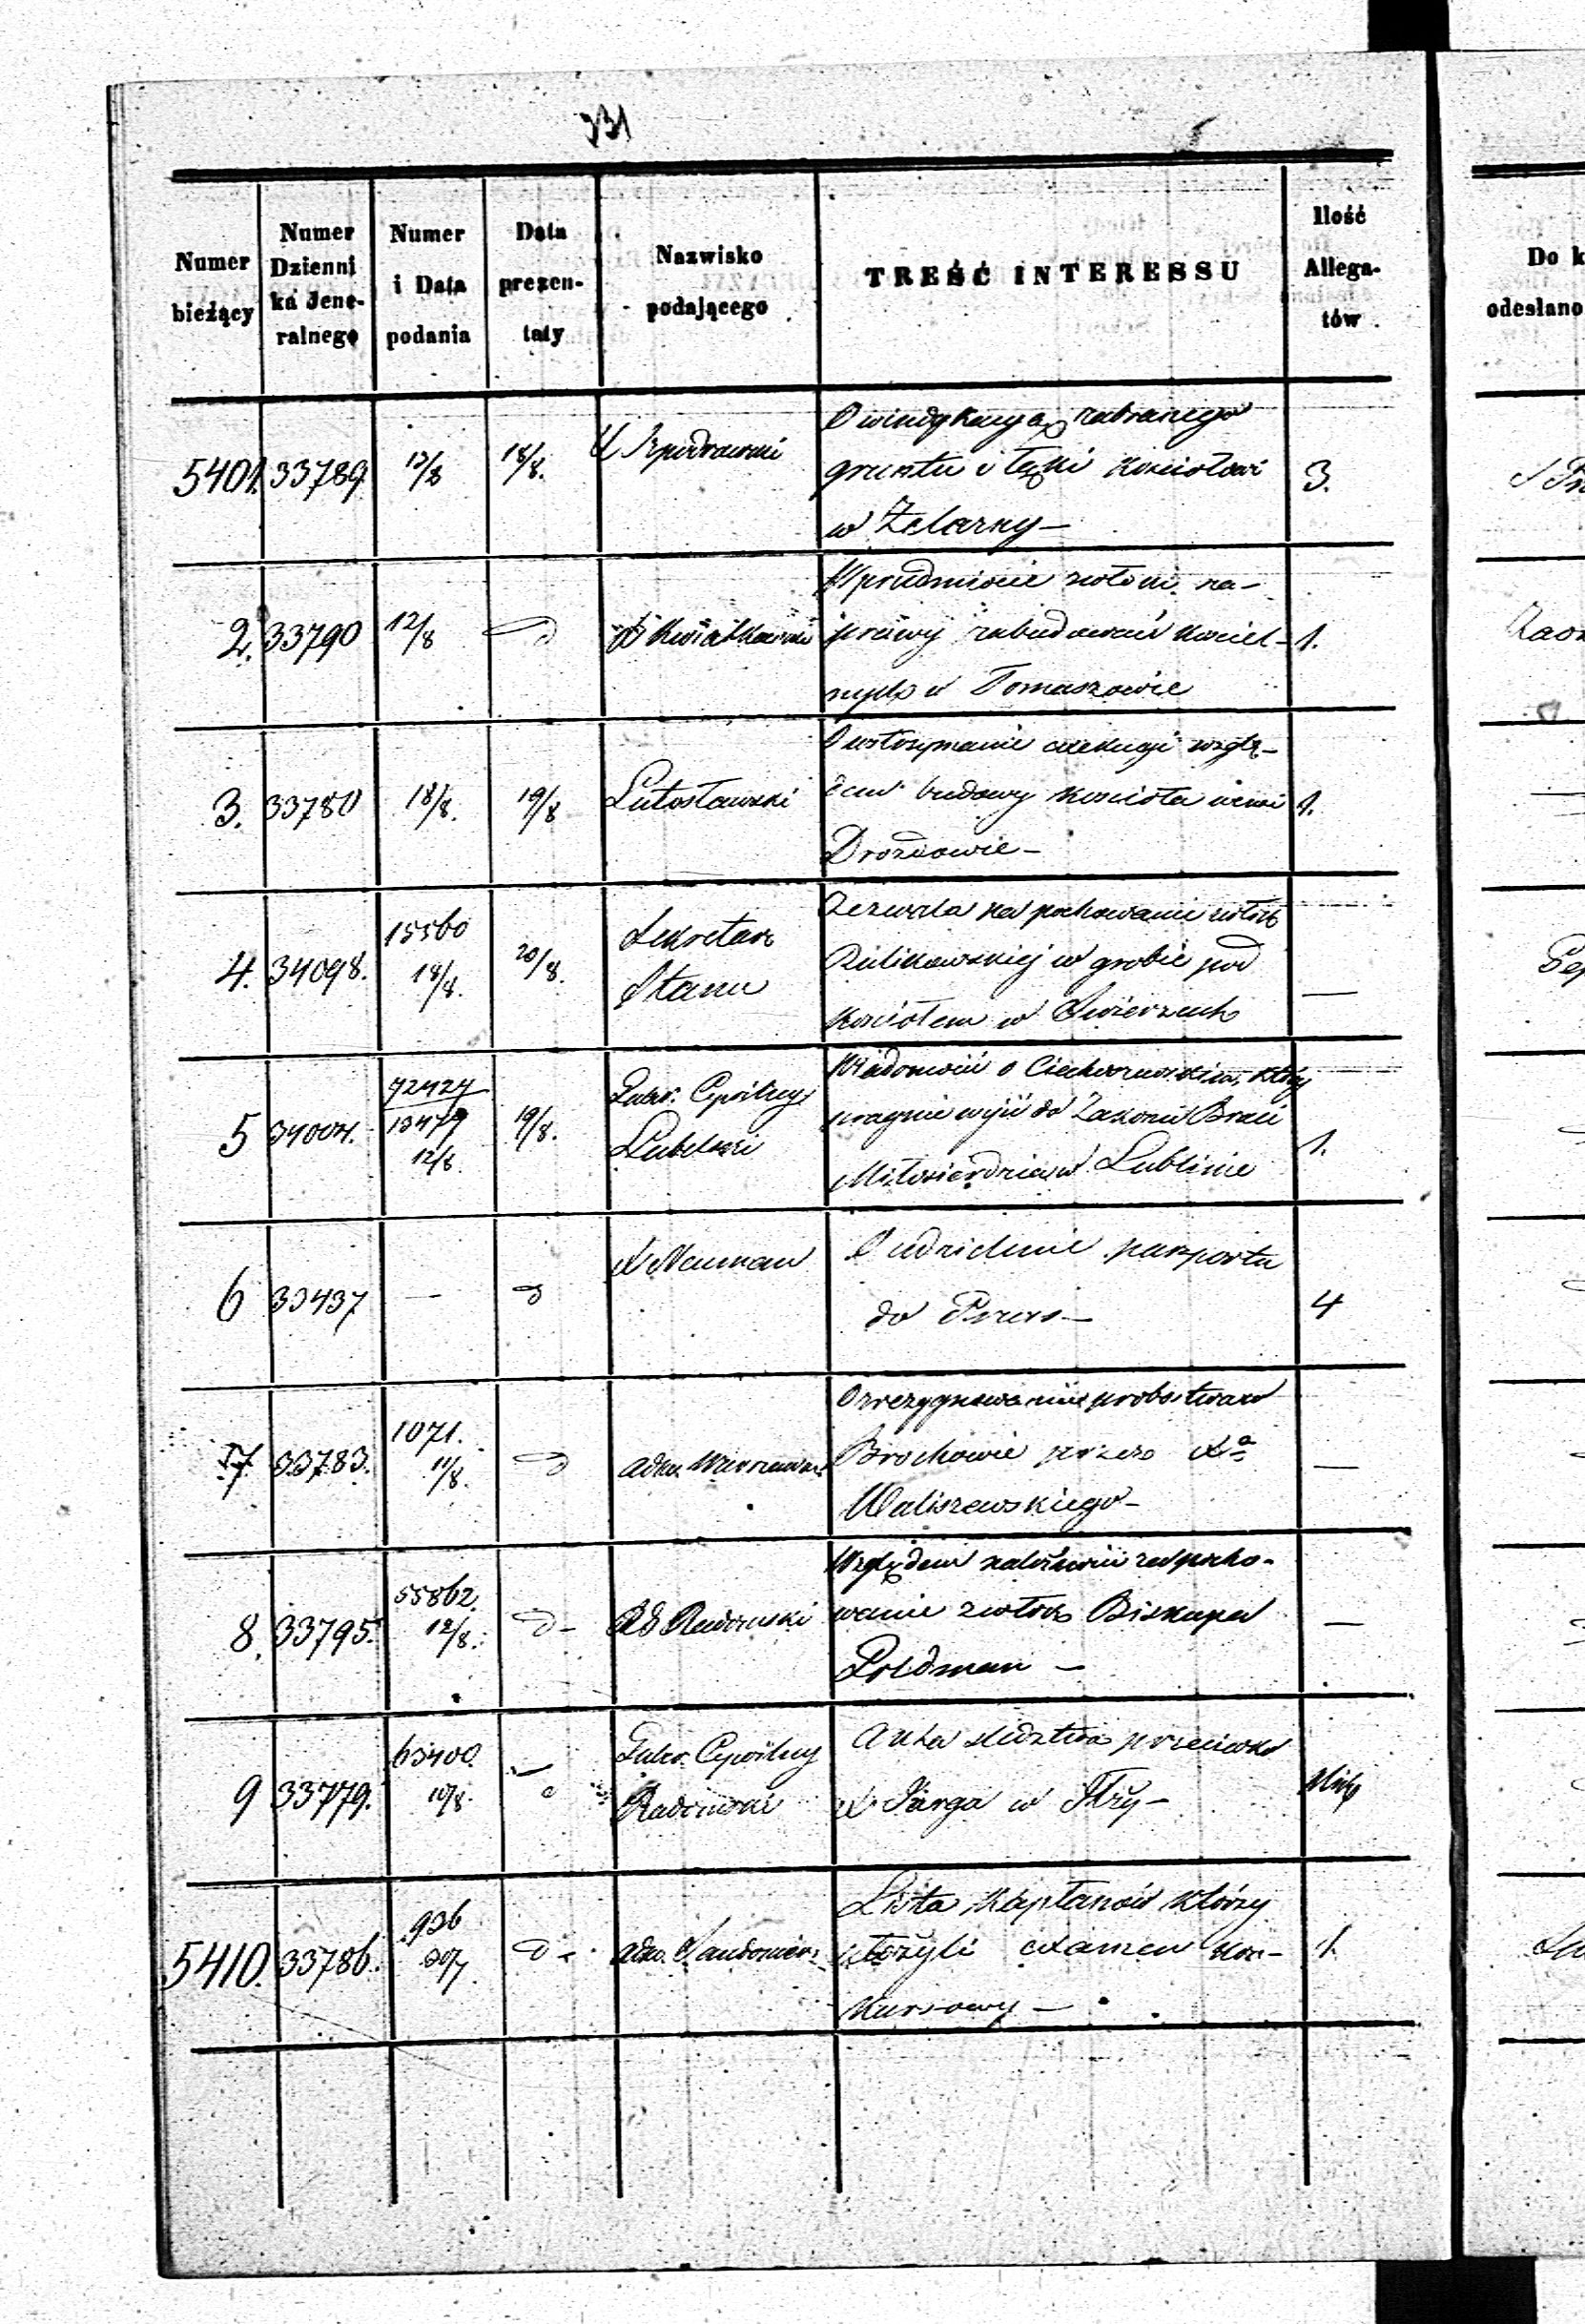 331
Numer bieżący
Numer Dziennika Jeneralnego
Numer i Data podania
Data prezentaty
Nazwisko podającego
TREŚĆ INTERESSU
Ilość Allegatów
Do k
odesłano
5401. 33789 13/8 18/8. X 3.
O windykacyą zabranego
gruntu i łąki kościołowi
w Żelazny —
2. 33790 12/8 d X Kwiatkowski 1.
względem
naprawy zabudowań kościel-
nych w Tomaszowie
3. 33780 18/8. 19/8 Lutosławski 1.
O wstrzymanie exekucyi wzglę-
dem budowy kościoła wewsi
Drozdowie —
4. 34098. 15560 18/8. 20/8. Sekretarz Stanu —
Zezwala na pochowanie zwłok
Rulikowskiej w grobie pod
kościołem w Świerzach
5 34004. 72427 13479 12/8. 19/8. Gubr. Cywilny Lubelski 1.
Wiadomość o który
pragnie wyjść do Zakonu Braci
Miłosierdzia w Lublinie
6 33437 — d X Neuman 4
O udzielenie paszportu
do Pruss —
7 33783. 1071. 11/8. d adm. Warszawski —
O zrezygnowaniu probostwa w
Brochowie przez Xa
Waliszewskiego —
8. 33795. 55862. 12/8. d — RG Radomski —
Względem należności za pocho-
wanie zwłok Biskupa
Goldman —
9 33779. 63400. 10/8. Gubr. Cywilny Radomski
Akta śledztwa przeciwko
X Jarga w Iłży —
5410. 33786. 926 30/7. d — adm. Sandomier. 1.
Lista Kapłanów którzy
złożyli examen kon-
kursowy —